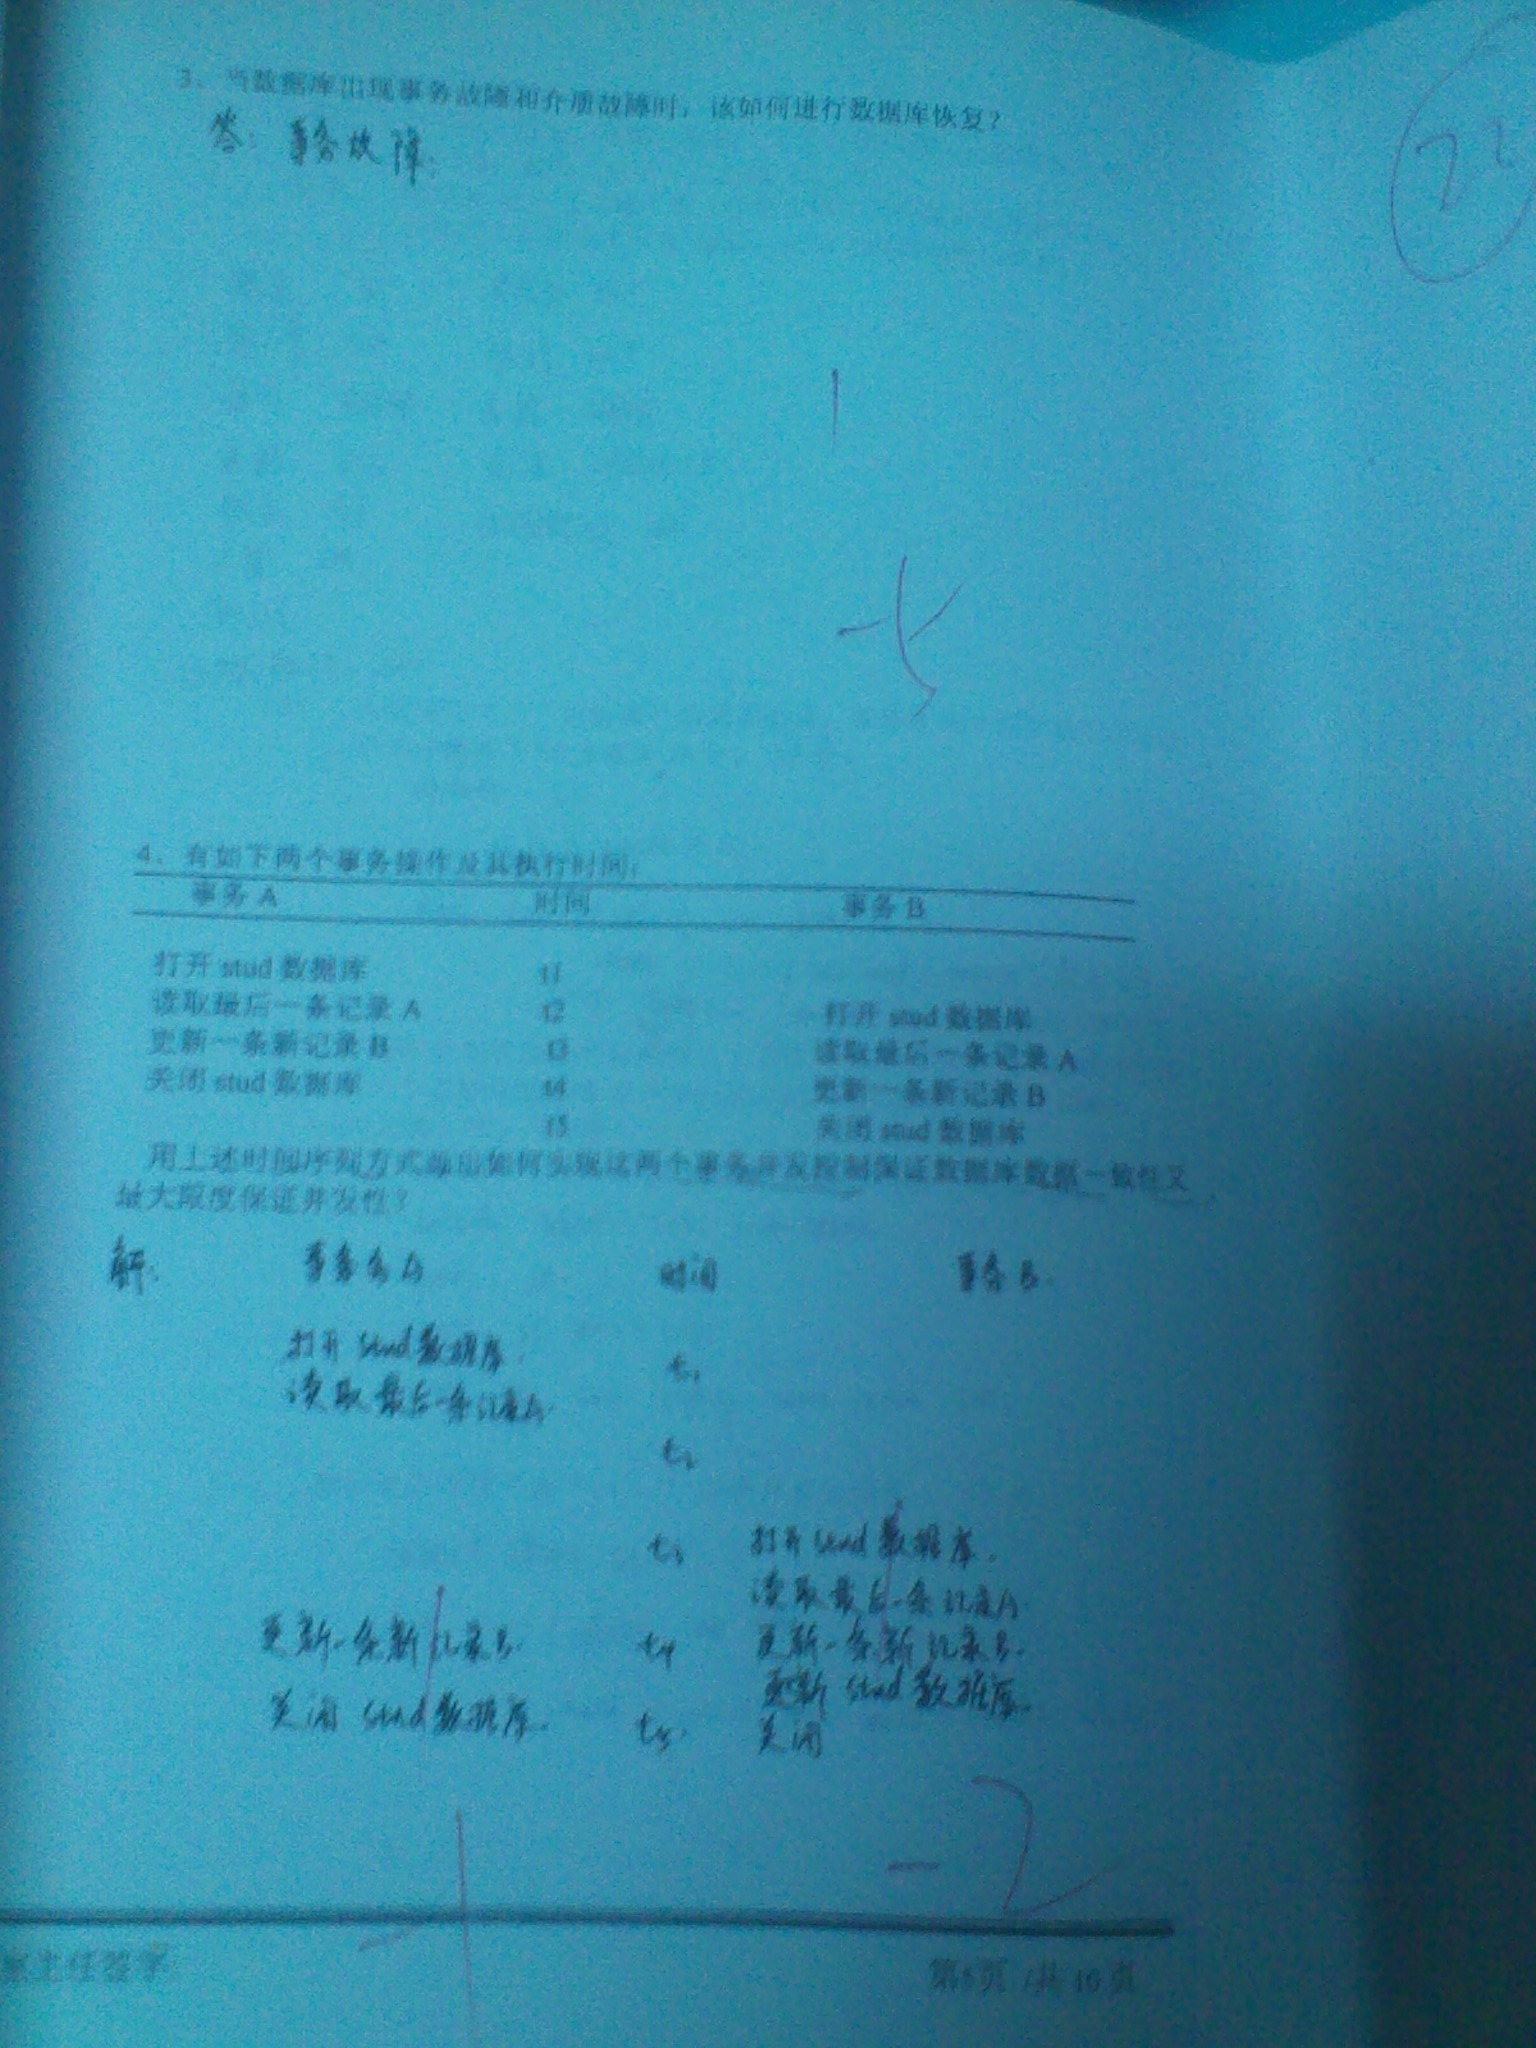 3、当数据库出现事务故障和介质故障时，该如何进行数据库恢复？
答：事务故障：
4、有如下两个事务操作及其执行时间：
事务 A 时间 事务 B
打开 stud 数据库 t1
读取最后一条记录 A t2 打开 stud 数据库
更新一条新记录 B t3 读取最后一条记录 A
关闭 stud 数据库 t4 更新一条新记录 B
t5 关闭 stud 数据库
用上述时间序列方式如何实现这两个事务并发控制保证数据库数据一致性又
最大限度保证并发性？
解： 事务 A 时间 事务 B
打开 stud 数据库 t1
读取最后一条记录A
t2
t3 打开 stud 数据库
读取最后一条记录A
更新一条新记录B t4 更新一条新记录B
更新 stud 数据库
关闭 stud 数据库 t5 关闭
-2
室主任签字 第5页 /共 10 页